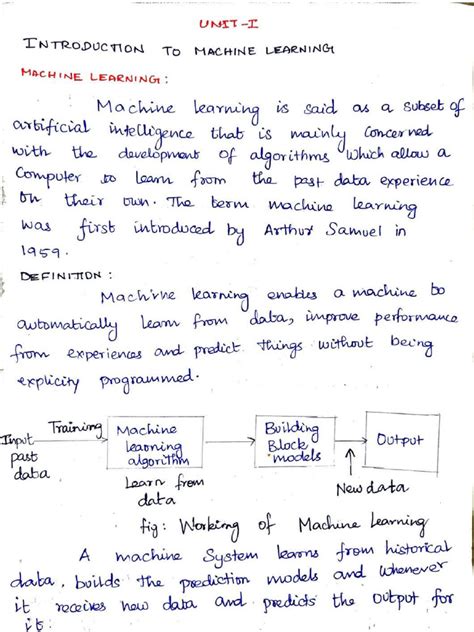 UNIT-I
INTRODUCTION TO MACHINE LEARNING
MACHINE LEARNING :
Machine learning is said as a subset of
artificial intelligence that is mainly concerned
with the development of algorithms which allow a
Computer to learn from the past data experience
on their own. The term machine learning
was first introduced by Arthur Samuel in
1959.
DEFINITION :
Machine learning enables a machine to
automatically learn from data, improve performance
from experiences and predict things without being
explicity programmed.
Input
past
data
Training
Machine
learning
algorithm
Learn from
data
Building
Block
models
Output
New data
fig: Working of Machine Learning
A machine System learns from historical
data, builds the prediction models and whenever
it receives new data and predicts the output for
it.